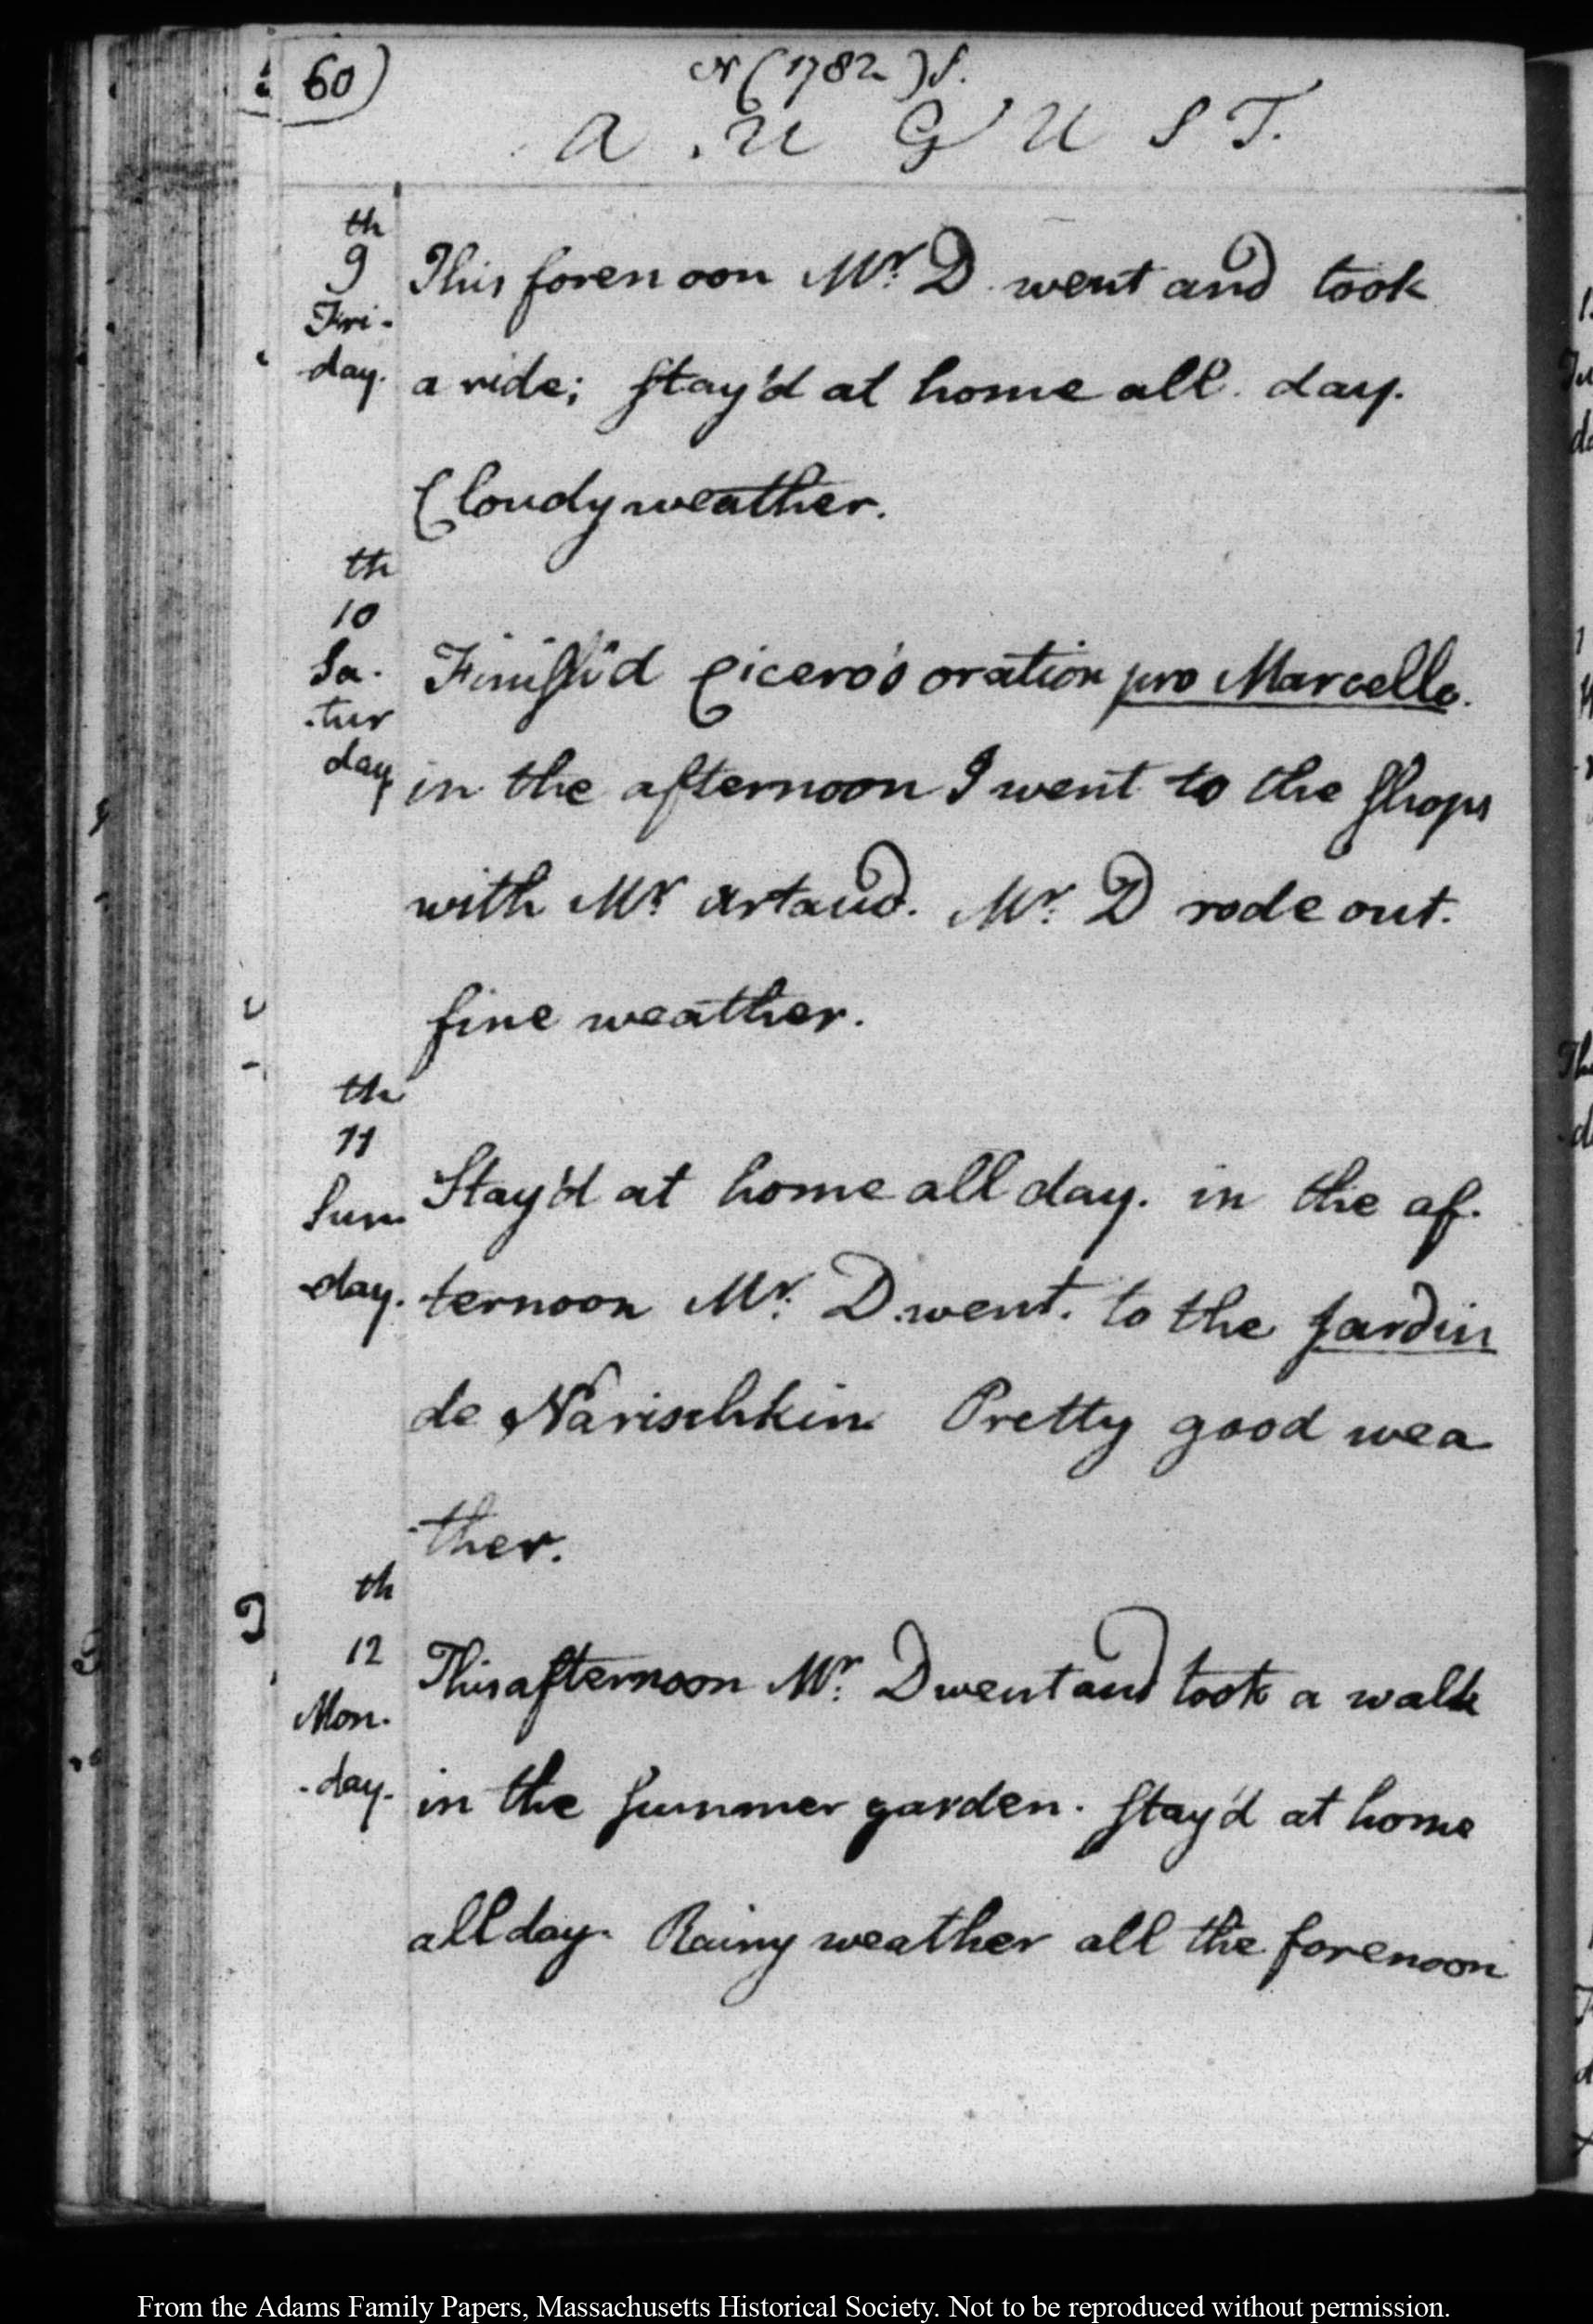 60)
N (1782) S.
A U G U S T.
th
9
Fri-
day.
This forenoon Mr. D went and took
a ride; stay'd at home all day.
Cloudy weather.
th
10
Sa-
-tur
day
Finish'd Cicero's oration pro Marcello.
in the afternoon I went to the shops
with Mr. Artaud. Mr. D rode out.
fine weather.
th
11
Sun
-day.
Stay'd at home all day. in the af-
ternoon Mr. D. went to the jardin
de Narischkin Pretty good wea
-ther.
th
12
Mon-
-day.
This afternoon Mr. D went and took a walk
in the summer garden. Stay'd at home
all day. Rainy weather all the forenoon
From the Adams Family Papers, Massachusetts Historical Society. Not to be reproduced without permission.